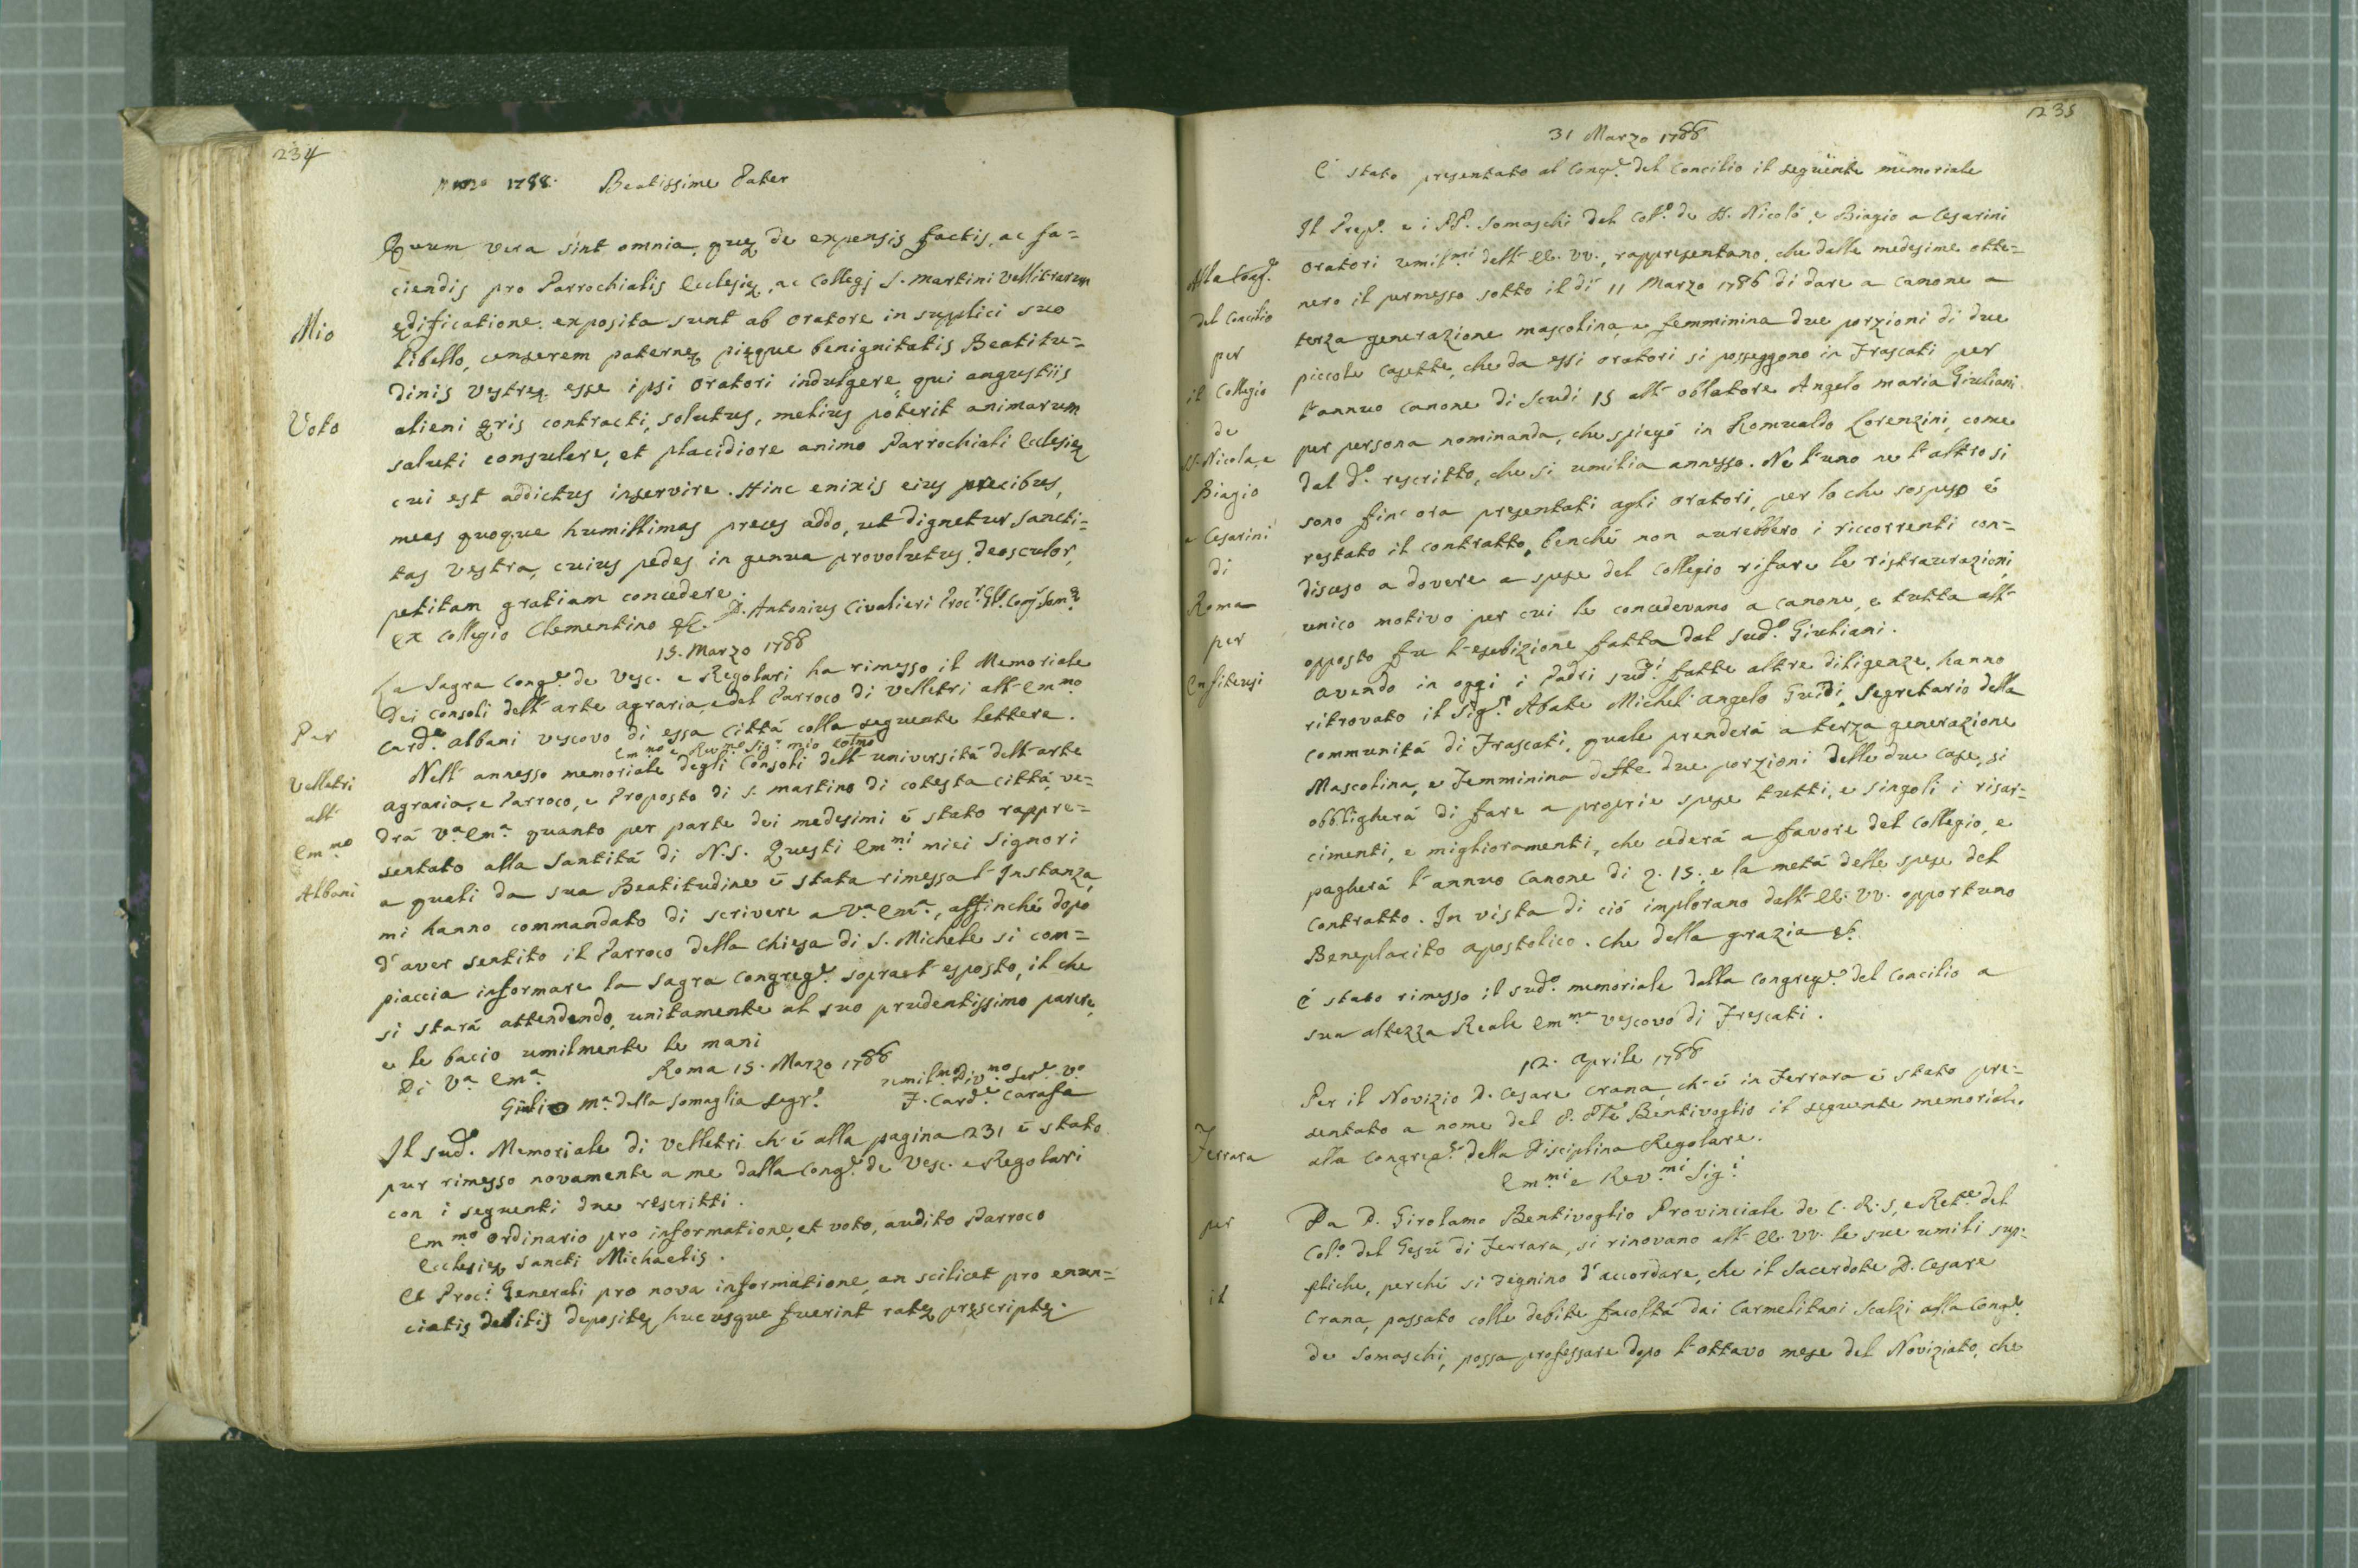 234
marzo 1788. Beatissime Pater
Quum vera sint omnia, quę de expensis factis, ac fa=
ciendis pro Parrochialis Ecclesię, ac Collegj S. Martini Vellitrarum
Mio
ędificatione exposita sunt ab oratore in supplici suo
libello, censerem paternę pięque benignitatis Beatitu=
dinis Vestrę esse ipsi oratori indulgere, qui angustiis
Voto
alieni ęris contracti, solutus, melius poterit animarum
saluti consulere, et placidiore animo Parrochiali Ecclesię
cui est addictus inservire. Hinc enixis eius precibus,
meas quoque humillimas preces addo, ut dignetur Sancti=
tas Vestra, cuius pedes in genua provolutus deosculor,
petitam gratiam concedere.
Ex Collegio Clementino &c. D. Antonius Civalieri Proc.r Gñl. Congr. Som.ę
15. Marzo 1788
La Sagra Cong.e de Vesc. e Regolari ha rimesso il Memoriale
dei Consoli dell'arte agraria, e del Parroco di Velletri all'Em.mo
Per
Card.e Albani vescovo di essa Cittá colla seguente lettera.
Em.mo e Rev.mo Sig.r mio Col̃mo
Nell'annesso memoriale degli Consoli dell'università dell'arte
Velletri
agraria, e Parroco, e Proposto di S. Martino di cotesta cittá, ve=
all'
drá V.a Em.a quanto per parte dei medesimi é stato rappre=
Em.mo
sentato alla Santitá di N.S. Questi Em.mi miei Signori
Albani
a quali da sua Beatitudine é stata rimessa l'Instanza,
mi hanno commandato di scrivere a V.a Em.a, affinché dopo
d'aver sentito il Parroco della Chiesa di S. Michele si com=
piaccia informare la Sagra Congreg.e sopra l'esposto, il che
si stará attendendo, unitamente al suo prudentissimo parere,
e le bacio umilmente le mani
Di V.a Em.a Roma 15. Marzo 1788
umil.mo Div.mo Ser.e V.o
Giulio M.a della Somaglia Segr.o F. Card.e Carafa
Il sud.o Memoriale di Velletri ch'é alla pagina 231 é stato
pur rimesso novamente a me dalla Cong.e de Vesc. e Regolari
con i seguenti due rescritti.
Em.mo Ordinario pro informatione, et voto, audito Parroco
Ecclesię Sancti Michaelis.
Et Proc.i Generali pro nova informatione, an scilicet pro enun=
ciatis debitis depositę huc usque fuerint ratę pręscriptę.
235
31 Marzo 1788
E' stato presentato al Cong.e del Concilio il seguente memoriale
Il Prep.o e i PP. Somaschi del Col.o de SS. Nicoló, e Biagio a Cesarini
Alla Cong.e
oratori umil.mi dell'EE. VV., rappresentano, che dalle medesime otte=
del Concilio
nero il permesso sotto il dí 11 Marzo 1786 di dare a canone a
per
terza generazione mascolina, e femminina due porzioni di due
il Collegio
piccole casette, che da essi oratori si posseggono in Frascati per
l'annuo canone di Scudi 15 all'oblatore Angelo Maria Giuliani
de
per persona nominanda, che spiegó in Romualdo Lorenzini, come
SS. Nicola, e
dal d.o rescritto, che si umilia annesso. Ne l'uno ne l'altro si
Biagio
sono fin'ora presentati agli oratori, per lo che sospeso é
a Cesarini
restato il contratto, benché non avrebbero i riccorrenti con=
di
disceso a dovere a spese del Collegio rifare le ristraurazioni,
Roma
unico motivo per cui le concedevano a canone, e tutta all'
per
opposto fu l'esebizione fatta dal sud.o Giuliani.
Enfiteusi
Avendo in oggi i Padri sud.i fatte altre diligenze, hanno
ritrovato il Sig.r Abate Michel'angelo Guidi, Segretario della
communitá di Frascati, quale prenderá a terza generazione
Mascolina, e Femminina dette due porzioni delle due case, si
obbligherá di fare a proprie spese tutti, e singoli i risar=
cimenti, e miglioramenti, che cederá a favore del Collegio, e
pagherá l'annuo Canone di ?. 15, e la metá delle spese del
Contratto. In vista di ció implorano dall'EE. VV. opportuno
Beneplacito apostolico. Che della grazia &c.
É stato rimesso il sud.o memoriale dalla Congreg.e del Concilio a
sua altezza Reale Em.ma vescovo di Frescati.
12. Aprile 1788
Per il Novizio D. Cesare Crana, ch'é in Ferrara é stato pre=
sentato a nome del P. Pr̃e Bentivoglio il seguente memoriale
Ferrara
alla Congreg.e della Disciplina Regolare.
Em.mi e Rev.mi Sig.i
per
Da D. Girolamo Bentivoglio Provinciale de C. R. S, e Ret.re del
Col.o del Gesú di Ferrara, si rinovano all'EE. VV. le sue umili sup=
pliche, perché si degnino d'accordare, che il Sacerdote D. Cesare
il
Crana, passato colle debite facoltá dai Carmelitani Scalzi alla Cong.e
de Somaschi, possa professare dopo l'ottavo mese del Noviziato, che